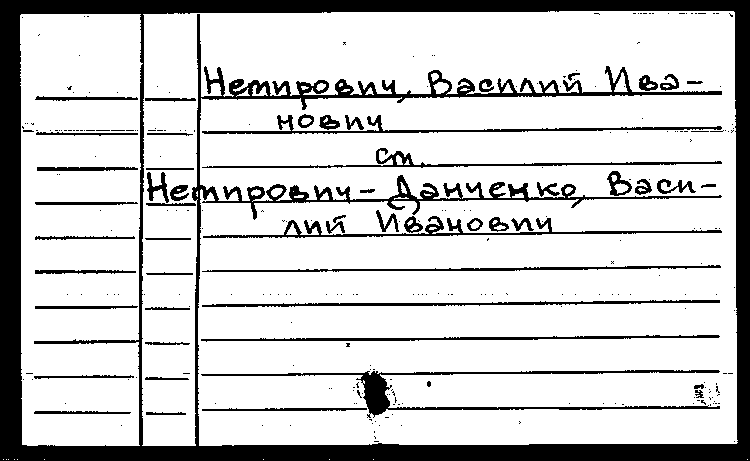 Немирович, Василий Ива-
нович
см.
Немирович-Данченко, Васи-
лий Иванович